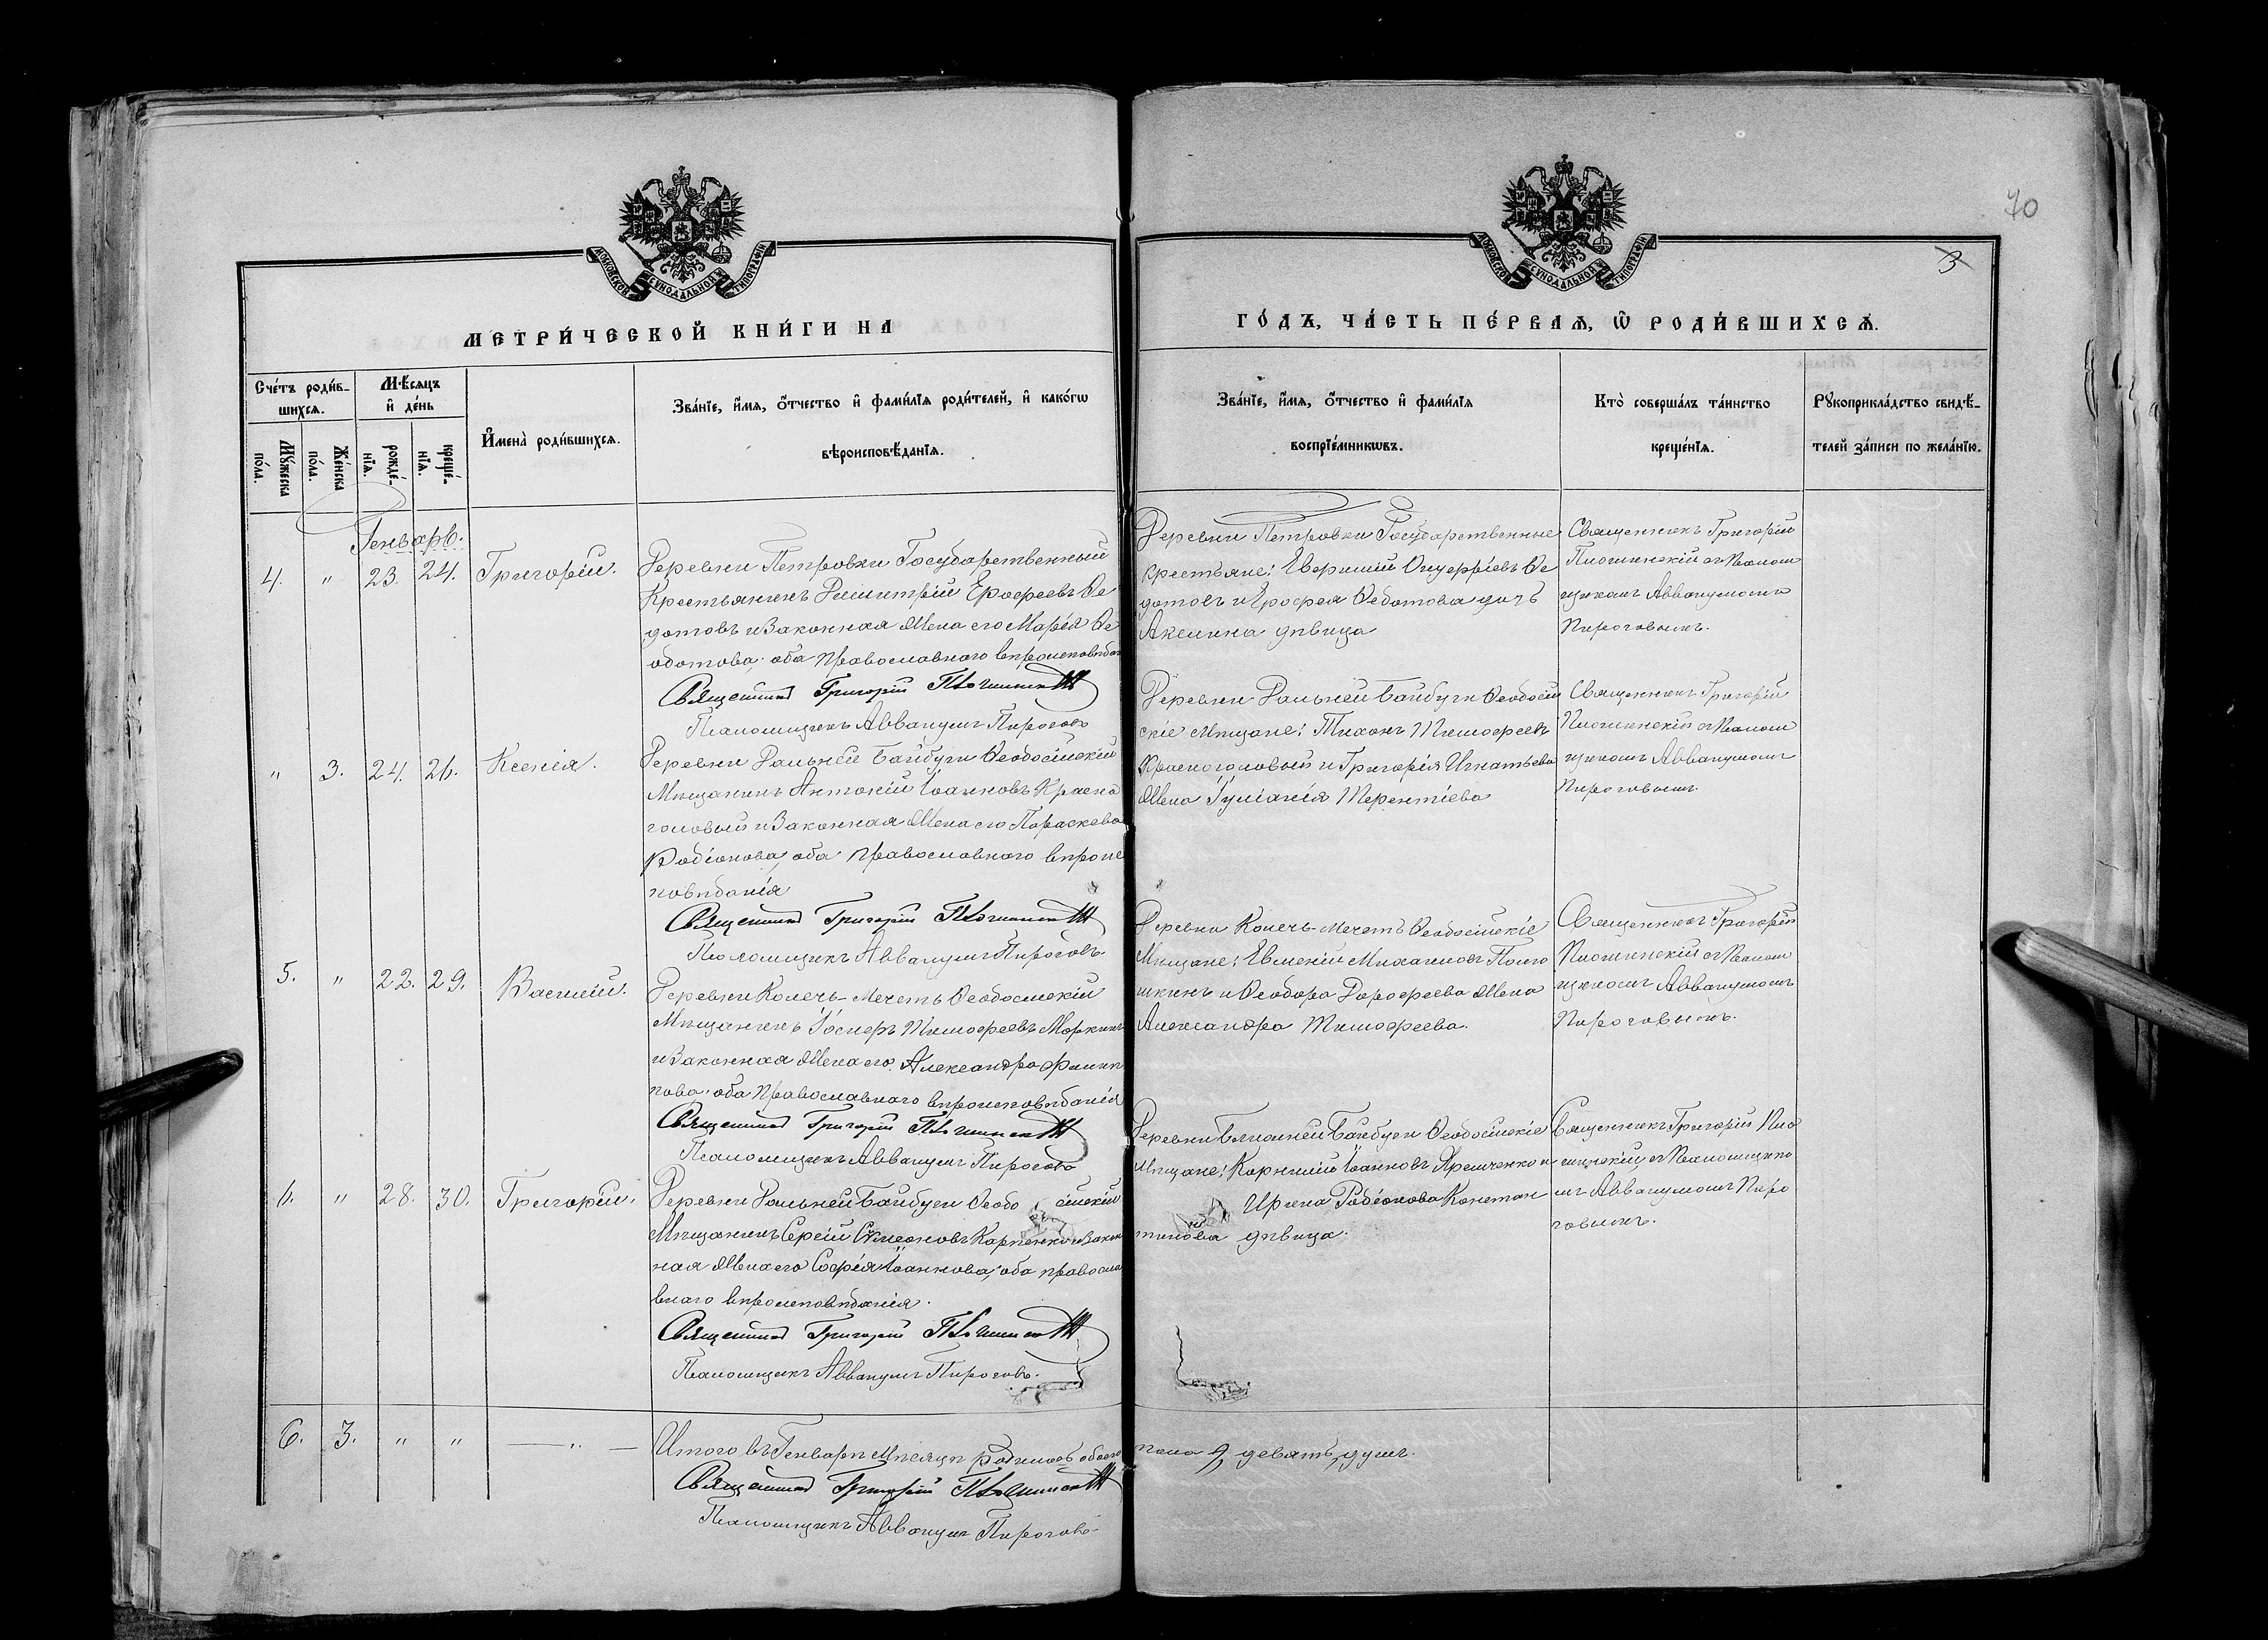 70
3
МОСКОВСКОЙ СѴНОДАЛЬНОЙ ТИПОГРАФІИ
МОСКОВСКОЙ СѴНОДАЛЬНОЙ ТИПОГРАФІИ
МЕТРИ́ЧЕСКОЙ КНИ́ГИ НА
ГО́ДЪ, ЧА́СТЬ ПЕ́РВАѦ, Ѡ҆ РОДИ́ВШИХСѦ.
Сче́тъ роди́в-
шихсѧ.
Мѣ́сѧцъ
и҆ де́нь
Мꙋ́жеска
по́ла.
Же́нска
по́ла.
рожде́-
нїѧ.
креще́-
нїѧ.
И҆мена̀ роди́вшихсѧ.
Зва́нїе, и҆́мѧ, ѻ҆́тчество и҆ фами́лїѧ роди́телей, и҆ како́гѡ
вѣроисповѣ́данїѧ.
Зва́нїе, и҆́мѧ, ѻ҆́тчество и҆ фами́лїѧ
воспрїе́мникѡвъ.
Кто̀ соверша́лъ та́инство
креще́нїѧ.
Рꙋкоприкла́дство свидѣ́-
телей за́писи по жела́нїю.
Генварь.
4. " 23. 24. Григорій.
Деревни Петровки Государственный
Крестьянинъ Димитрій Ерофеевъ Ѳе
дотовъ и Законная Жена его Марія Ѳе
дотова, оба православного вѣроисповѣдан
Священникъ Григорій
Псаломщикъ Аввакумъ Пироговъ
Деревни Петровки Государственные
крестьяне: Евфимій Онуфріевъ Ѳе
дотовъ и Ерофея Ѳедотова дочь
Акелина дѣвица
Священникъ Григорій
съ Псалом
щикомъ Аввакумомъ
Пироговымъ.
" 3. 24. 26. Ксенія.
Деревни Дальней Байбуги Ѳеодосійскій
Мѣщанинъ Антоній Іоанновъ Красно
головый и Законная Жена его Параскева
Родіонова, оба православного вѣроис
повѣданія
Священникъ Григорій
Псаломщикъ Аввакумъ Пироговъ
Деревни Дальней Байбуги Ѳеодосій
скіе мѣщане: Тихонъ Тимофеевъ
Красноголовый и Григорія Игнатьева
Жена Іуліанія Терентіева
Священникъ Григорій
съ Псалом
щикомъ Аввакумомъ
Пироговымъ.
5. " 22. 29. Василій.
Деревни Колечь-Мечеть Ѳеодосійскій
Мѣщанинъ Іосифъ Тимофеевъ Моркинъ
и Законная Жена его Александра Филип
пова, оба Православного вѣроисповѣданія
Священникъ Григорій
Псаломщикъ Аввакумъ Пироговъ
Деревни Колечь-Мечеть Ѳеодосійскіе
Мѣщане: Евменій Михаиловъ
и Ѳеодора Дорофеева Жена
Александра Тимофеева.
Священникъ Григорій
съ Псалом
щикомъ Аввакумомъ
Пироговымъ.
6. " 28. 30. Григорій.
Деревни Дальней Байбуги Ѳеодосійскій
Мѣщанинъ Сергій Симеоновъ Карпенко и Закон
ная Жена его Софія Іоаннова, оба православ
внаго вѣроисповѣданія.
Священникъ Григорій
Псаломщикъ Аввакумъ Пироговъ.
Деревни Ближней Байбуги Ѳеодосійскіе
Мѣщане: Корнилій Іоанновъ Яременко и
Ирина Родіонова Констан
тинова дѣвица.
Священникъ Григорій
съ Псаломщико
мъ Аввакумомъ Пиро
говымъ.
6. 3. " " — " —
Итого въ Генварѣ Мѣсяцѣ родилось обоего
пола 9, девять, душъ.
Священникъ Григорій
Псаломщикъ Аввакумъ Пироговъ